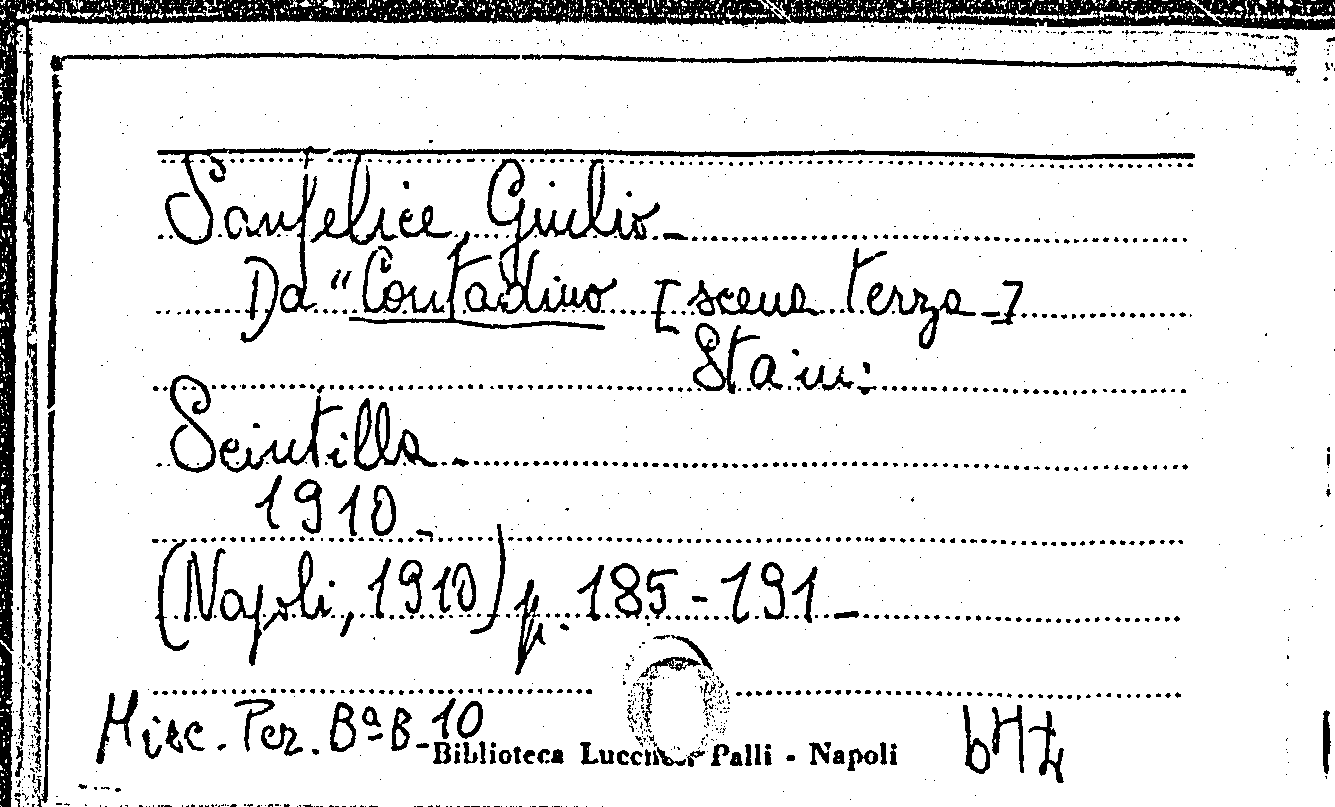 Sanfelice, Giulio -
Da "Contadino [scena terza -]
Sta in:
Scintilla -
1910 -
(Napoli, 1910) p. 185 - 191 -
Misc. Per. Bª B - 10
Biblioteca Palli - Napoli